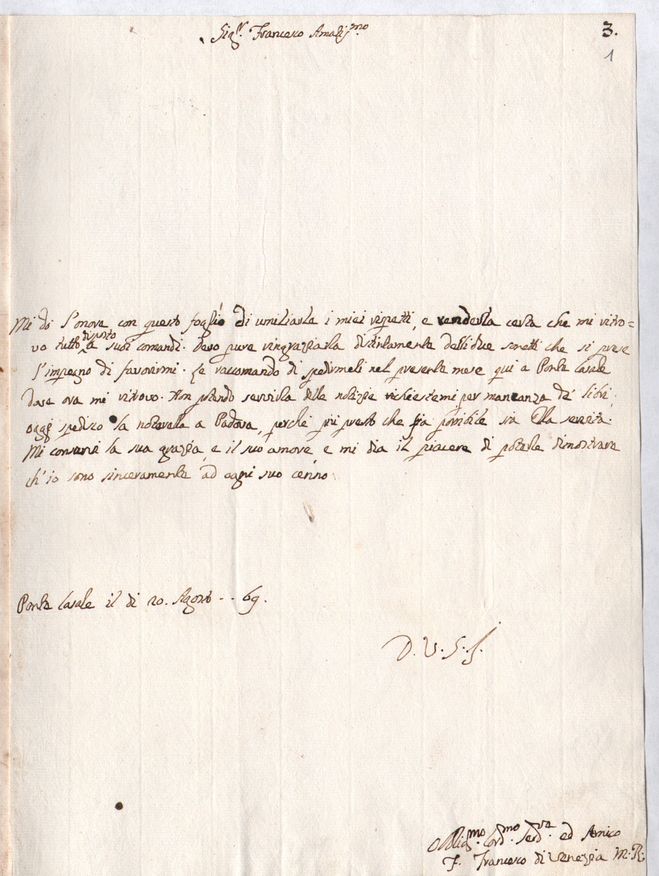 Sig.r Francesco Amatis.mo
3.
1
Mi dò l'onore con questo foglio di umiliarle i miei rispetti, e renderla certa che mi ritro=
vo tutto disposto a' suoi comandi. Devo pure ringraziarla distintamente delli due sonetti che si prese
l'impegno di favorirmi. Le raccomando di spedirmeli nel presente mese qui a Ponte Casale
dove ora mi ritrovo. Non potendo servirla delle notizie richiestemi per mancanza de' libri,
oggi spedisco la notarella a Padova, perchè più presto che sia possibile sia Ella servita.
Mi conservi la sua grazia, e il suo amore, e mi dia il piacere di poterle dimostrare
ch'io sono sinceramente ad ogni suo cenno
Ponte Casale il dì 20. Agosto - - 69.
D. V. S. S.
Obblig.mo Cord.mo Serv.re ed Amico
F. Francesco di Venezia M. R.